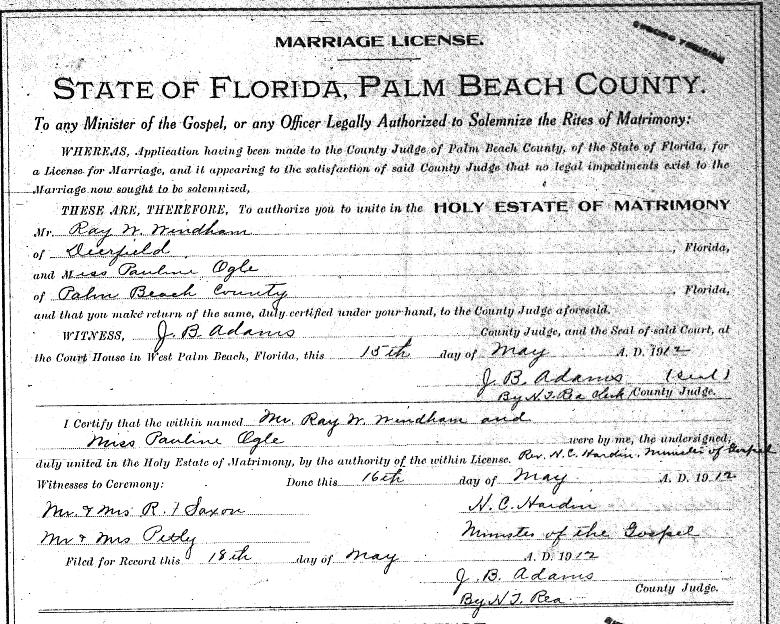 MARRIAGE LICENSE.
STATE OF FLORIDA, PALM BEACH COUNTY.
To any Minister of the Gospel, or any Officer Legally Authorized to Solemnize the Rites of Matrimony:
WHEREAS, Application having been made to the County Judge of Palm Beach County, of the State of Florida, for
a License for Marriage, and it appearing to the satisfaction of said County Judge that no legal impediments exist to the
Marriage now sought to be solemnized,
THESE ARE, THEREFORE, To authorize you to unite in the HOLY ESTATE OF MATRIMONY
Mr. Ray W. Windham
of Deerfield, Florida,
and Miss Pauline Ogle
of Palm Beach County, Florida,
and that you make return of the same, duly certified under your hand, to the County Judge aforesaid.
WITNESS, J. B. Adams County Judge, and the Seal of said Court, at
the Court House in West Palm Beach, Florida, this 15th day of May A. D. 1912
J. B. Adams (seal)
By N. T. Rea Clerk County Judge.
I Certify that the within named Mr. Ray W. Windham and
Miss Pauline Ogle were by me, the undersigned,
duly united in the Holy Estate of Matrimony, by the authority of the within License. Rev. N. C. Hardin, Minister of Gospel
Witnesses to Ceremony: Done this 16th day of May A. D. 1912
Mr. & Mrs R. I Saxon N. C. Hardin
Mr & Mrs Minister of the Gospel
Filed for Record this 18th day of May A. D. 1912
J. B. Adams
By N. T. Rea County Judge.